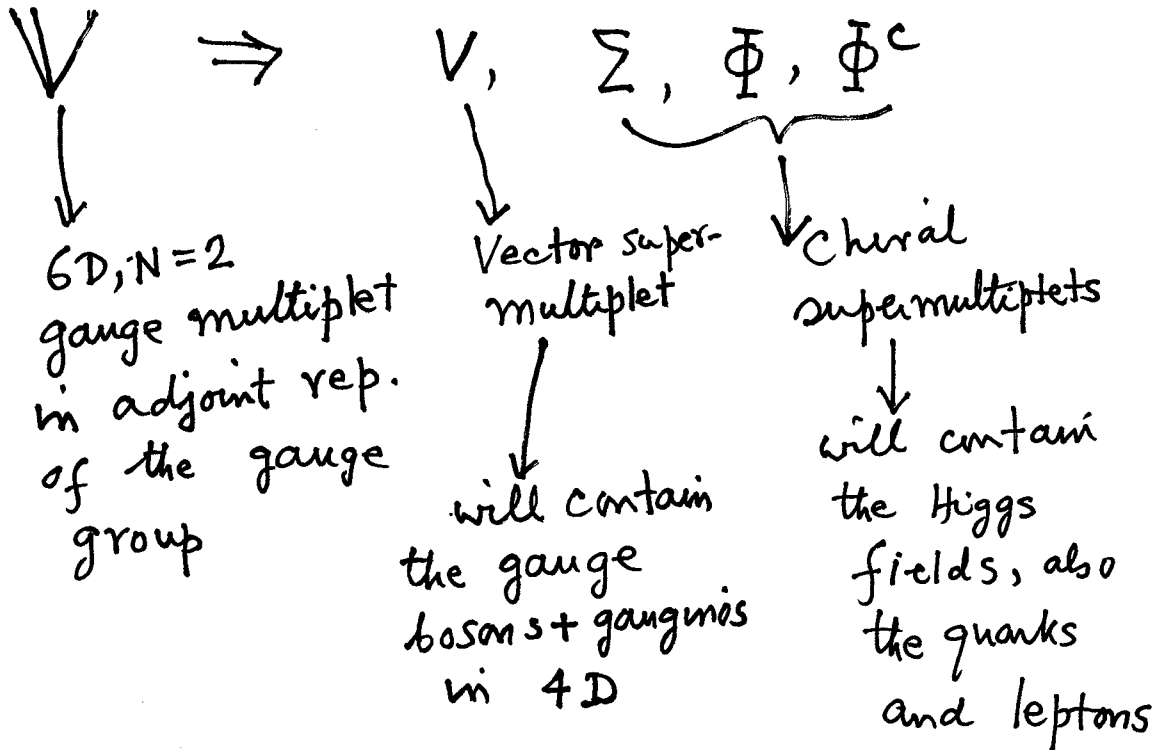 𝕍 ⇒ V, Σ, Φ, Φᶜ
6D, N=2
gauge multiplet
in adjoint rep.
of the gauge
group
Vector super-
multiplet
will contain
the gauge
bosons + gauginos
in 4D
Chiral
supermultiplets
will contain
the Higgs
fields, also
the quarks
and leptons